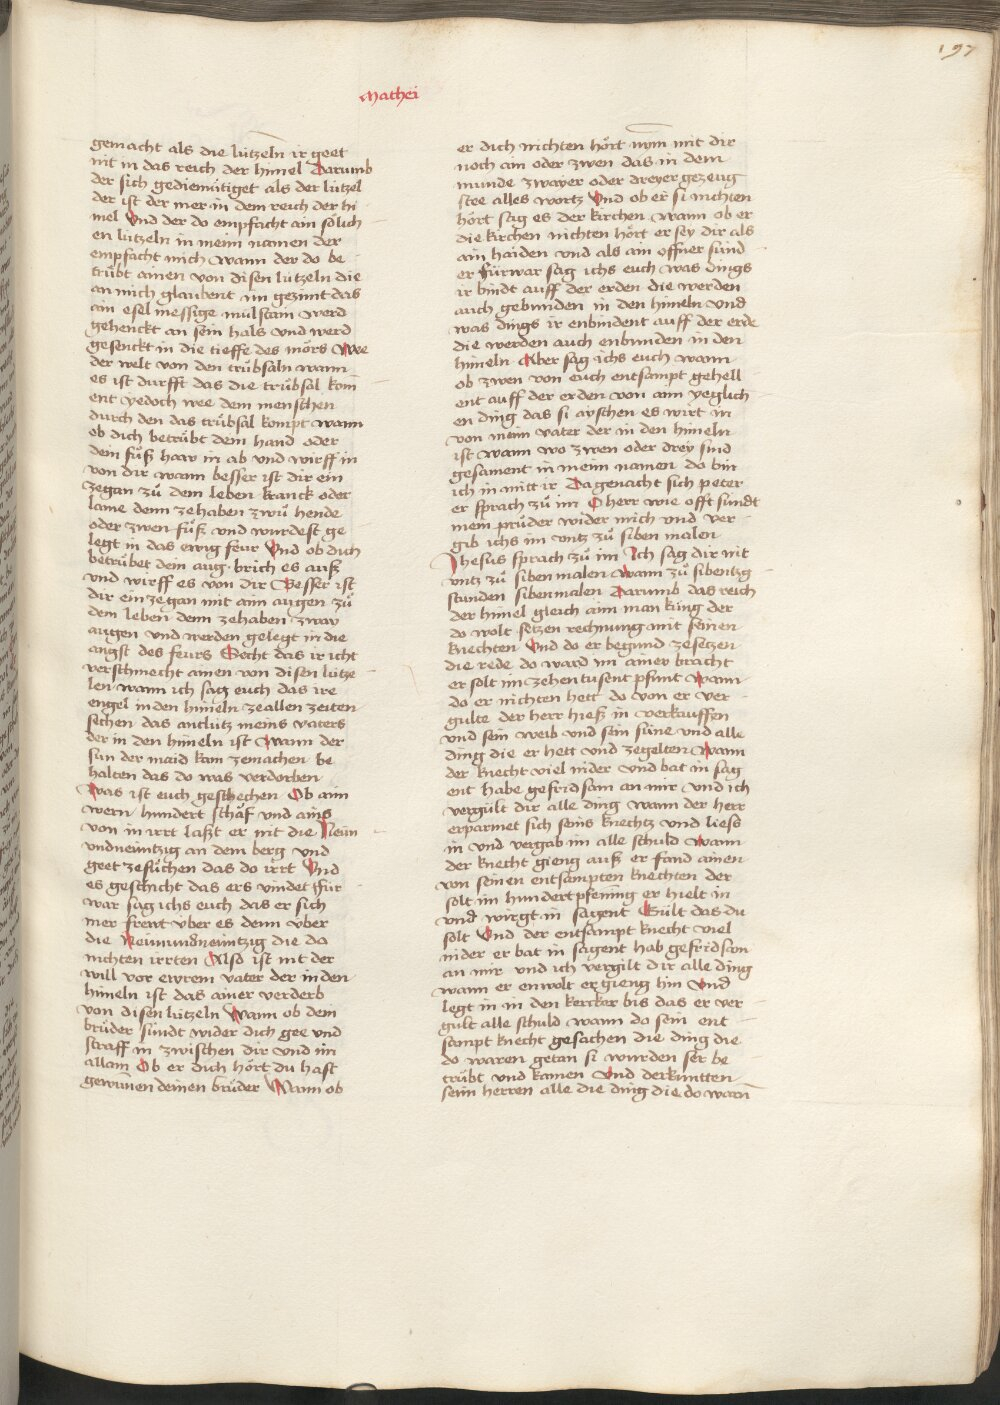 197
Mathei
gemacht als die lützeln ir geet
nit in das reich der himel Darumb
der sich gediemütiget als der lützel
der ist der mer in dem reich der hi
mel Vnd der do empfacht ain sölich
en lützeln in meim namen der
empfacht mich wann der do be-
trübt ainen von disen lützeln die
an mich glaubent im gezimt das
ain esel messige mülstain werd
gehenckt an sein hals vnd werd
gesenckt in die tieffe des mörs Wee
der welt von den trübsaln wann
es ist durfft das die trübsal kom
ent yedoch wee dem menschen
durch den das trübsal kompt wann
ob dich betrübt dem hand oder
dein füß haw in ab vnd wirff in
von dir wann besser ist dir ein
zegan zü dem leben kranck oder
lame denn zehaben zwü hende
oder zwen füß vnd wurdest ge
legt in das ewig feur Vnd ob dich
betrübet dein aug brich es auß
vnd wirff es von dir Besser ist
dir ein zegan mit aim augen zü
dem leben denn zehaben zway
augen vnd werden gelegt in die
angst des feurs Secht das ir icht
verschmecht ainen von disen lütze
len wann ich sag euch das ire
engel in den himeln zeallen zeiten
sechen das antlütz meins vaters
der in den himeln ist Wann der
sun der maid kam zemachen be
halten das do was verdorben
Was ist euch geschechen Ob aim
wern hundert schaf vnd ains
von in irrt laßt er nit die Neün
vndneüntzig an dem berg vnd
geet zesüchen das do irrt Vnd
es geschicht das ers vindet Für
war sag ichs euch das er sich
mer frewt über es denn über
die Neünundneüntzig die do
nichten irrten Also ist nit der
will vor ewrem vater der in den
himeln ist das ainer verderb
von disen lützeln Wann ob dem
brüder sündt wider dich gee vnd
straff in zwischen dir vnd im
allain Ob er dich hört du hast
gewunen deinen brüder Wann ob
er dich nichten hört nim mit dir
noch ain oder zwen das in dem
munde zwayer oder dreyer gezeug
stee alles wortz Vnd ob er si nichten
hört sag es der kirchen wann ob er
die kirchen nichten hört er sey dir als
ain haiden vnd als ain offner sünd
er Fürwar sag ichs euch was dings
ir bindt auff der erden die werden
auch gebunden in den himeln vnd
was dings ir enbindent auff der erde
die werden auch enbunden in den
himeln Aber sag ichs euch wann
ob zwen von euch entsampt gehell
ent auff der erden von aim yeglich
en ding das si ayschen es wirt in
von meim vater der in den himeln
ist wann wo zwen oder drey sind
gesament in meim namen do bin
ich in mitt ir Da genacht sich peter
er sprach zü im O herr wie offt sündt
mein prüder wider mich vnd ver-
gib ichs im vntz zü siben malen
Jhesus sprach zü im Ich sag dir nit
vntz zü siben malen Wann zü sibentzg
stunden sibenmalen Darumb das reich
der himel gleich aim man küng der
do wolt setzen rechnung mit seinen
knechten Vnd do er begund zesetzen
die rede do ward im ainer bracht
er solt im zehentusent pfunt Wann
do er nichten hett do von er ver-
gulte der herr hieß in verkauffen
vnd sein weib vnd sein süne vnd alle
ding die er hett vnd zegelten Wann
der knecht viel nider vnd bat in sag
ent habe gefridsam an mir vnd ich
vergült dir alle ding wann der herr
erparmet sich seins knechtz vnd liess
in vnd vergab im alle schuld Wann
der knecht gieng auß er fand ainen
von seinen entsampten knechten der
solt im hundert pfenning er hielt in
vnd wirgt in sagent Gült das du
solt Vnd der entsampt knecht viel
nider er bat in sagent hab gefridsam
an mir vnd ich vergilt dir alle ding
wann er enwolt er gieng hin Vnd
legt in in den kerckar bis das er ver-
gült alle schuld wann do sein ent-
sampt knecht gesachen die ding die
do waren getan si wurden ser be
trübt vnd kamen Vnd derkuntten
seim herren alle die ding die do warn